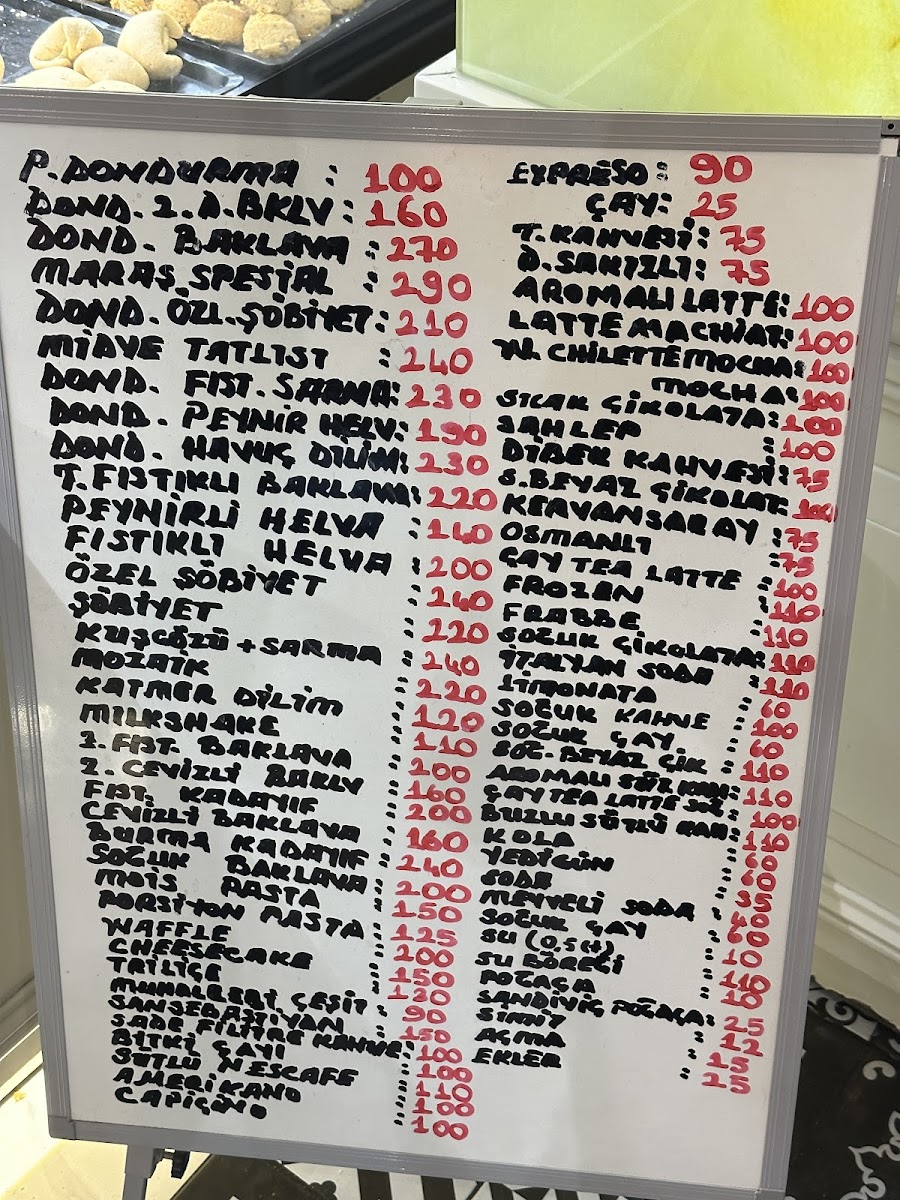 P.DONDURMA : 100
DOND.2.D.BKLV : 160
DOND. BAKLAVA : 270
MARAŞ SPESİAL : 290
DOND. ÖZL.ŞÖBİYET : 210
MİDYE TATLISI : 240
DOND. FIST.SARMA : 230
DOND. PEYNİR HELV : 190
DOND. HAVUÇ DİLİM : 230
T.FISTIKLI BAKLAVA : 220
PEYNİRLİ HELVA : 140
FISTIKLI HELVA : 200
ÖZEL ŞÖBİYET : 240
ŞÖBİYET : 220
KUŞGÖZÜ+SARMA : 240
MOZAİK : 220
KATMER DİLİM : 120
MILKSHAKE : 110
2.FIST. BAKLAVA : 200
2.CEVİZLİ BAKLV : 160
FIST. KADAYIF : 200
CEVİZLİ BAKLAVA : 160
BURMA KADAYIF : 240
SOĞUK BAKLAVA : 200
MOİS PASTA : 150
PORSİYON PASTA : 125
WAFFLE : 200
CHEESECAKE : 150
TRİLİÇE : 130
MUHALLEBİ ÇEŞİT : 90
SANSEBASTİYAN : 150
SADE FİLİTRE KAHVE : 100
BİTKİ ÇAYI : 100
SÜTLÜ NESCAFE : 110
AMERİKANO : 100
CAPİÇİNO : 100
EXPRESO : 90
ÇAY : 25
T.KAHVESİ : 75
D.SAKIZLI : 75
AROMALI LATTE : 100
LATTE MACHIAT : 100
W. CHILETTE MOCHA : 100
MOCHA : 100
SICAK ÇİKOLATA : 100
SAHLEP : 100
DİBEK KAHVESİ : 75
S.BEYAZ ÇİKOLAT : 100
KERVANSARAY : 75
OSMANLI : 75
ÇAY TEA LATTE : 100
FROZEN : 110
FRABBE : 110
SOĞUK ÇİKOLATA : 110
İTALYAN SODA : 110
LİMONATA : 60
SOĞUK KAHVE : 100
SOĞUK ÇAY : 60
SOĞ.BEYAZ ÇİK : 110
AROMALI SĞK KAH : 110
ÇAY TEA LATTE SOĞ : 100
BUZLU SÜTLÜ KAH : 110
KOLA : 60
YEDİGÜN : 60
SODA : 35
MEYVELİ SODA : 40
SOĞUK ÇAY : 60
SU (0,5 Lt) : 10
SU BÖREĞİ : 110
POĞAÇA : 10
SANDİVİÇ POĞAÇA : 25
SİMİT : 12
AÇMA : 15
EKLER : 25